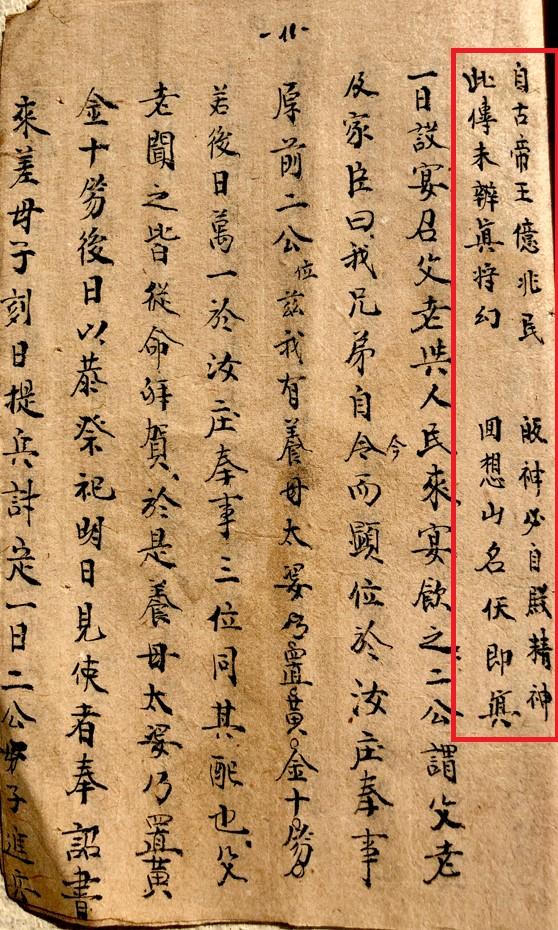 自古帝王億兆民 皈神必自殿精神
此傳未辨眞将幻 回想山名仸即眞
一日設宴召父老與人民來宴飲之二公謂父老
及家臣曰我兄弟自今而顕位於汝庄奉事
厚前二公位兹我有養母太婆乃置黄金十勞
若後日萬一於汝庄奉事三位同其配也父
老聞之皆從命拜賀於是養母太婆乃置黄
金十勞後日以恭祭祀明日見使者奉詔書
來差母子刻日提兵討定一日二公母子進兵